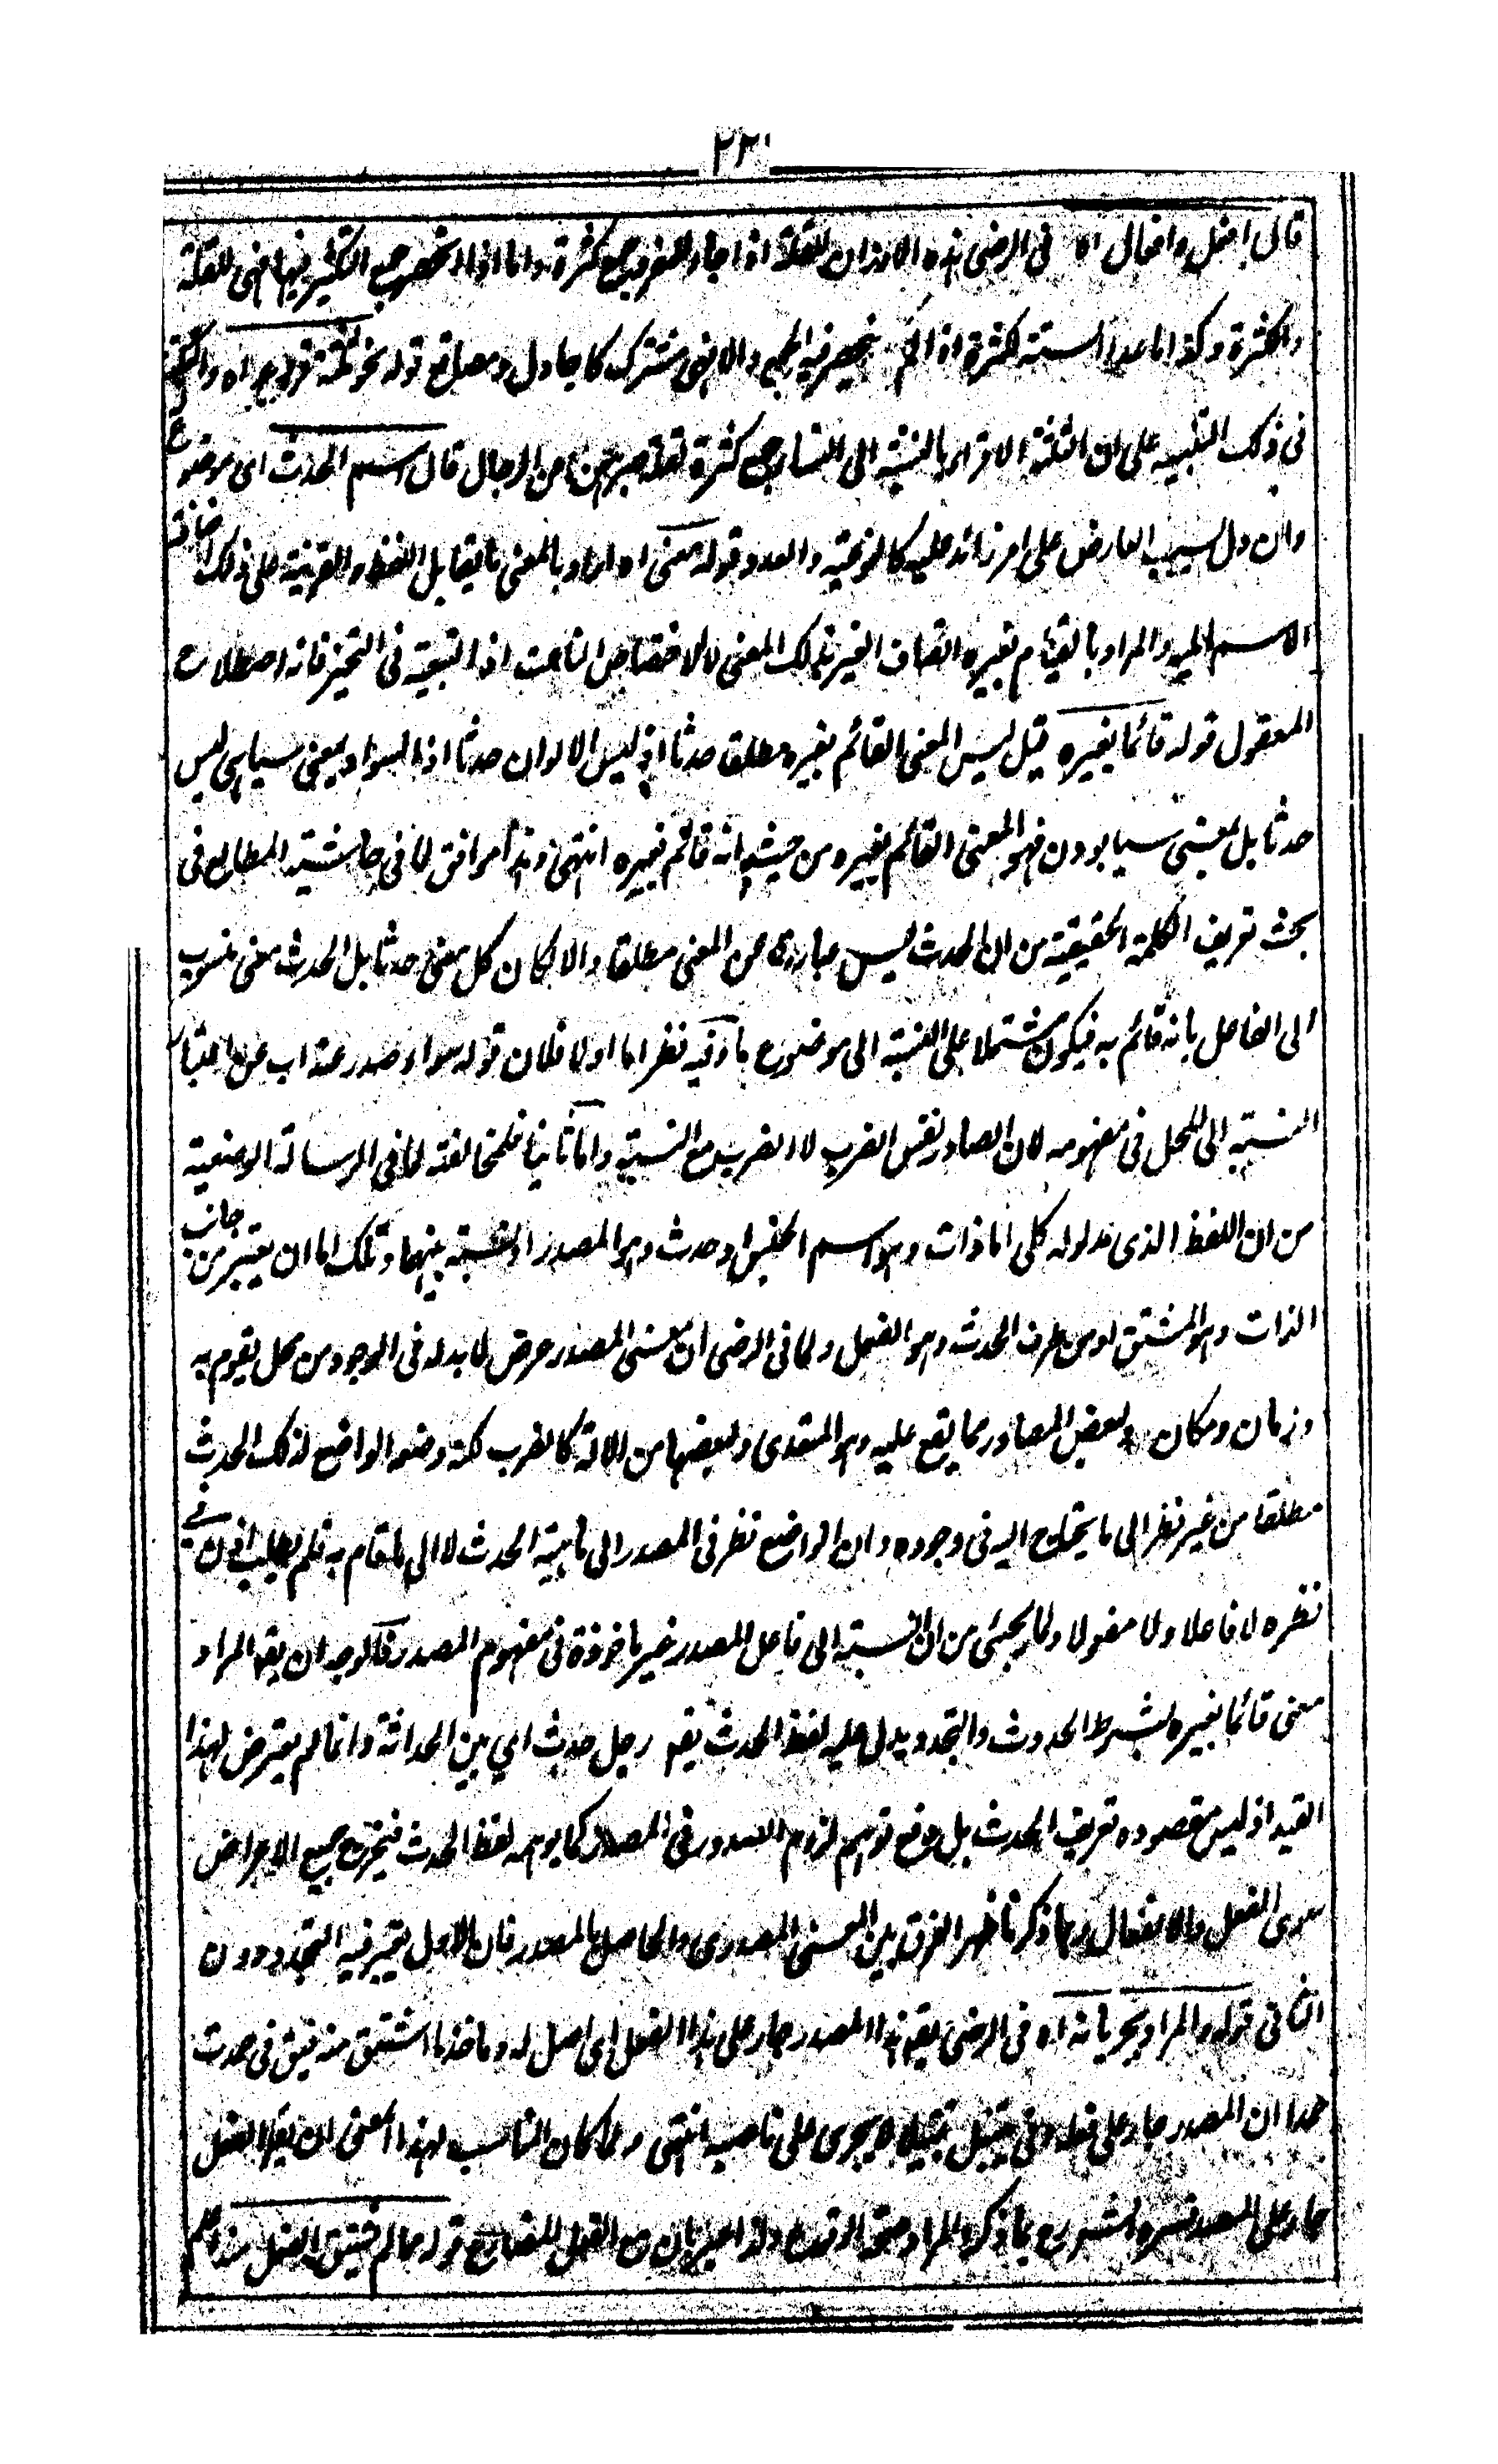 ٢٣٠
قال افعل وافعال اه فى الرضى هذه الاوزان للقلة اذا جاء للمفرد جمع كثرة واما اذا انحصر جمع التكثير فيها فهى للقلة
والكثرة وكذا ما عدا الستة لكثرة اذا لم ينحصر فيه الجمع والا فهى مشترك كاجادل ومصانع قوله نحو ثلثة قروء اه والنكتة
فى ذلك التنبيه على ان الثلثة الاقراء بالنسبة الى النساء كثرة لقلة صبرهن عن الرجال قال اسم الحدث اى موضوع
وان دل بسبب العارض على امر زائد عليه كالنوعية والعدد قوله معنى اه اراد بالمعنى ما يقابل اللفظ والقرينة على ذلك اضافة
الاسم اليه والمراد بالقيام بغيره اتصاف الغير بذلك المعنى لا الاختصاص الناعت اذ التبعية فى التحيز فانه اصطلاح
المعقول قوله قائما بغيره قيل ليس المعنى القائم بغيره مطلق حدثا اذ ليس الالوان حدثا اذ السواد بمعنى سياهى ليس
حدثا بل بمعنى سياه بودن فهو المعنى القائم بغيره من حيث انه قائم بغيره انتهى وهذا موافق لما فى حاشية المطالع فى
بحث تعريف الكلمة الحقيقية من ان الحدث ليس عبارة عن المعنى مطلقا والا لكان كل معنى حدثا بل الحدث معنى منسوب
الى الفاعل بانه قائم به فيكون مشتملا على النسبة الى موضوع ما وفيه نظر اما اولا فلان قوله سواء صدر عنه اب عن اعتبار
النسبة الى المحل فى مفهومه لان الصادر نفس الضرب لا الضرب مع النسبة واما ثانيا فلمخالفته لما فى الرسالة الوضعية
من ان اللفظ الذى مدلوله كلى اما ذات وهو اسم الجنس او حدث وهو المصدر او نسبة بينهما وتلك اما ان يعتبر من جانب
الذات وهو المشتق او من طرف الحدث وهو الفعل ولما فى الرضى ان معنى المصدر عرض لا بد له فى الوجود من محل يقوم به
وزمان ومكان ولبعض المصادر مما يقع عليه وهو المتعدى ولبعضها من الالة كالضرب لكنه وضعه الواضع لذلك الحدث
مطلقا من غير نظر الى ما يحتاج اليه فى وجوده وان الواضع نظر فى المصدر الى ماهية الحدث لا الى ما قام به فلم يطلب اذن فى
نظره لا فاعلا ولا مفعولا ولما يجئى من ان النسبة الى فاعل المصدر غير ماخوذة فى مفهوم المصدر فالوجه ان يقه المراد
معنى قائما بغيره بشرط الحدوث والتجدد يدل عليه لفظ الحدث يقه رجل حدث اى بين الحداثة وانما لم يتعرض لهذا
القيد اذ ليس مقصوده تعريف الحدث بل دفع توهم لزوم الصدور فى المصدر كما يوهمه لفظ الحدث فيخرج جميع الاعراض
سوى الفعل والانفعال وبما ذكرنا ظهر الفرق بين المعنى المصدرى والحاصل بالمصدر فان الاول يعتبر فيه التجدد دون
الثانى قوله والمراد بجريانه اه فى الرضى يقه هذا المصدر جار على هذا الفعل اى اصل له وماخذ ما اشتق منه فيق فى حمدت
حمدا ان المصدر جار على فعله وفى تبتل تبتيلا لا يجرى على ناصبه انتهى ولما كان المناسب لهذا المعنى ان يقه الفعل
جار على المصدر فسره الش رح بما ذكره المراد صحة الوقوع قوله مما لم يشتق الفعل منه